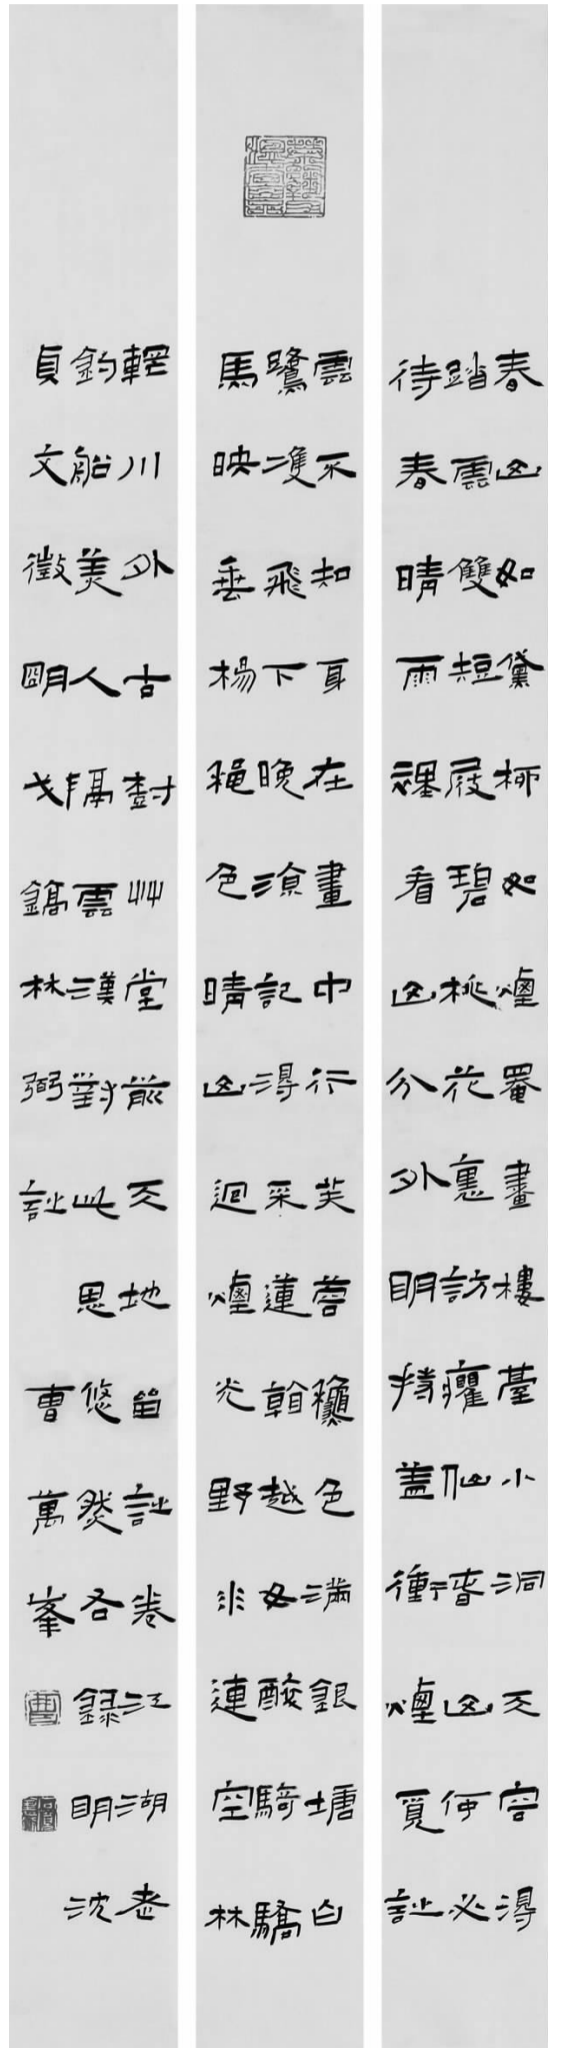 春山如黛柳如煙罨畫樓臺小洞天容得
踏雲雙短屐碧桃花裏訪癯仙春山何必
待春晴雨裡看山分外明持盖衝煙覓詩
雲不知身在畫中行芙蓉龝色滿銀塘白
鷺雙飛下晚涼記得采蓮歌越女醉騎驕
馬映垂楊龝色晴山迥煙光野水連空林
輞川外古樹艸堂前天地留詩卷江湖老
釣船美人隔雲漢對此思悠然右錄明沈
貞文徵明戈鎬林弼詩曹萬峯